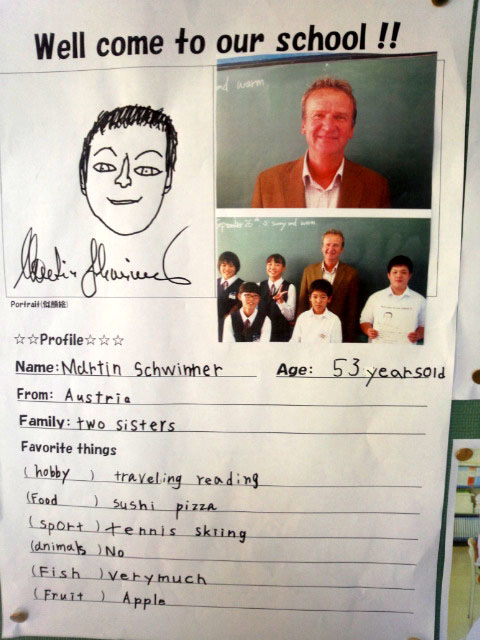 Well come to our school !!
nd warm
september 26th is sunny and warm
Martin Schwimmer
Portrait(似顔絵)
☆☆Profile☆☆☆
Name: Martin Schwimmer Age: 53 years old
From: Austria
Family: two sisters
Favorite things
(hobby ) traveling reading
(Food ) sushi pizza
(sport ) tennis skiing
(animals ) No
(Fish ) very much
(Fruit ) Apple